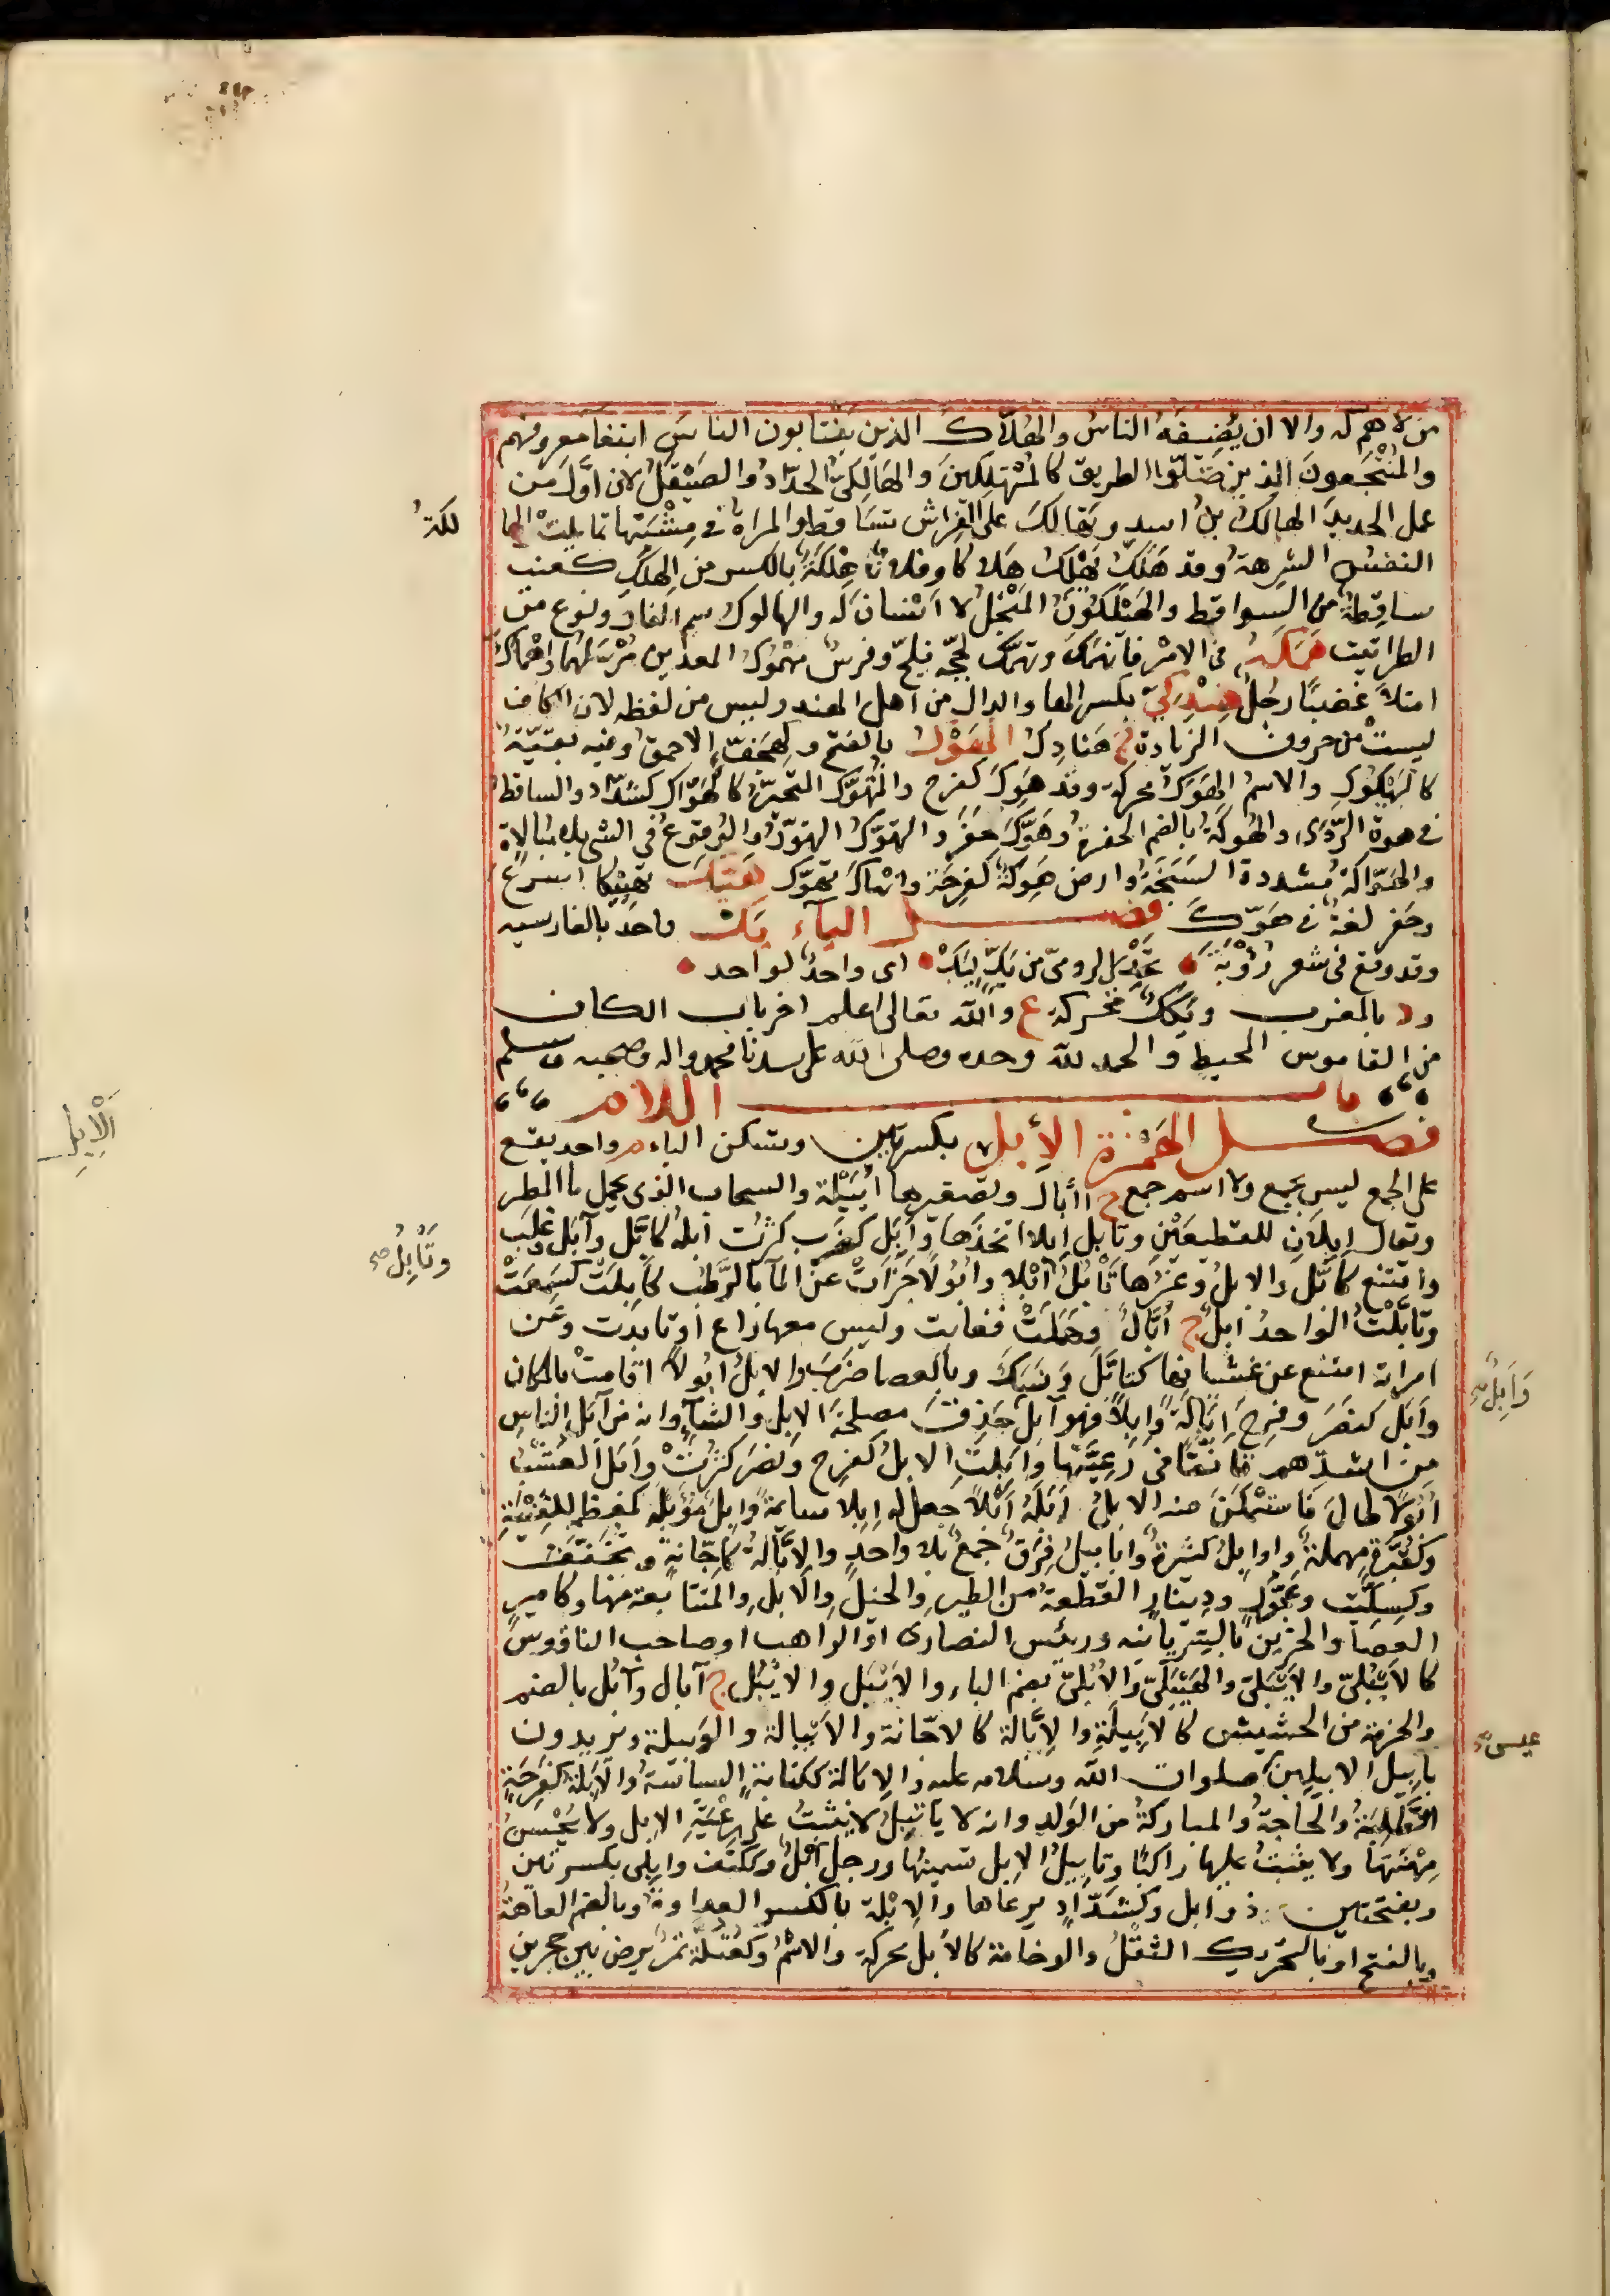 من لا هم له والا ان يضيفه الناس والهلاك الذين ينتابون الناس ابتغا معروفهم
والمنتجعون الذين ضلوا الطريق كالمهتلكين والهالكي الحداد والصيقل لان اول من
عمل الحديد الهالك بن اسد وتهالك على الفراش تساقط والمراة في مشيتها تمايلت الها
لكة
النفس الشرهة وقد هلك يهلك هلاكا وفلان هلكة بالكسر من الهلك كعنب
ساقطة من السواقط والهيلكون المنجل لا اسنان له والهالوك سم الفار ونوع من
الطراثيث همكه في الامر فانهمك وتهمك لججه فلج وفرس مهموك المعدين مرسلهما واهماك
امتلا غضبا رجل هندكي بكسر الها والدال من اهل الهند وليس من لفظه لان الكاف
ليست من حروف الزيادة ج هنادك الهوك بالفتح وكهجف الاحمق وفيه بقية
كالهيكوك والاسم الهوك محركة وقد هوك كفرح والمتهوك المتحير كالهواك كشداد والساقط
في هوة الردى والهوكة بالضم الحفرة وهوك حفر والتهوك التهور والوقوع في الشي بلا مبالاة
والهواكة مشددة السبخة وارض هوكة كفرحة وانهاك تهوك هيك تهييكا اسرع
وحفر لغة في هوك فصل الياء يك واحد بالفارسيه
وقد وقع في شعر رؤبة تحدي الرومي من يك ليك اى واحد لواحد
ود بالمغرب ويكك محركة ع والله تعالى اعلم اخر باب الكاف
من القاموس المحيط والحمد لله وحده وصلى الله على سيدنا محمد واله وصحبه وسلم
باب اللام
فصل الهمزة الإبل بكسرتين وتسكن الباء م واحد يقع
الإبل
على الجمع ليس بجمع ولا اسم جمع ج اآبال وتصغيرها ابيلة والسحاب الذى يحمل ما المطر
ويقال ابلان للقطيعين وتابل ابلا اتخذها وابل كضرب كثرت ابله كابل وآبل وغلب
وامتنع كابل والابل وغيرها تأبل ابلا وابولا جزات عن الما بالرطب كابلت كسمعت
وتأبل
وتابلت الواحد ابل ج ابال وهملت فغابت وليس معها راع او تابدت وعن
امراته امتنع عن غشيانها كتابل ونسك وبالعصا ضرب والابل ابولا اقامت بالمكان
وابل كنصر وفرح ابالة وابلا فهو آبل حذق مصلحة الابل والشاء وانه من آبل الناس
وابل
من اشدهم تانقا في رعيتها وابلت الابل كفرح ونصر كثرت وابل العشب
ابولا طال فاستمكن منه الابل ابله ابلا جعل له ابلا سائمة وابل مؤبلة كمعظمة للقنية
وكقبرة مهملة واوابل كثيرة وابابيل فرق جمع بلا واحد والابالة كاجانة ويخفف
وكسكيت وعجول ودينار القطعة من الطير والخيل والابل والمتتابعة منها وكامير
العصا والحزين بالسريانيه ورئيس النصارى او الراهب او صاحب الناقوس
كالايبلي والايبلي والهيبلي والابلي بضم الباء والايبل والايبل ج آبال وابل بالضم
والحزمة من الحشيش كالابيلة والابالة كالاجانة والايبالة والوبيلة ويريدون
بابيل الابيلين صلوات الله وسلامه عليه والابالة ككتابة السياسة والابلة كفرحة
عيسى
الطلبة والحاجة والمباركة من الولد وانه لا ياتبل لا يثبت على رعية الابل ولا يحسن
مهنتها ولا يثبت عليها راكبا وتابيل الابل تسمينها ورجل آبل وككتف وابلي بكسرتين
وبفتحتين ذو ابل وكشداد يرعاها والابلة بالكسر العداوة وبالضم العاهة
وبالفتح او بالتحريك الثقل والوخامة كالابل محركة والاثم وكعتلة تمر يرض بين حجرين